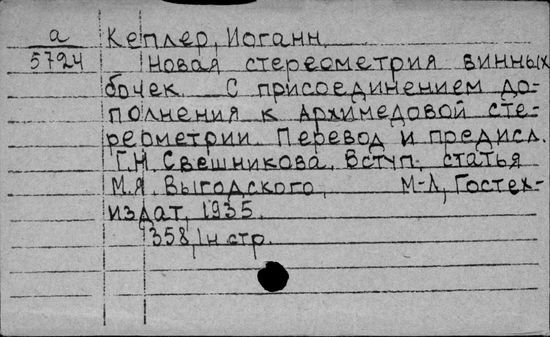 а Кеплер, Иоганн
5724 Новая стереометрия винных
бочек. С присоединением до-
полнения к Архимедовой сте-
реометрии. Перевод и предисл.
Г.Н. Свешникова. Вступ. статья
М.Я. Выгодского, М-Л, Гостех-
издат, 1935.
358, 1 н стр.